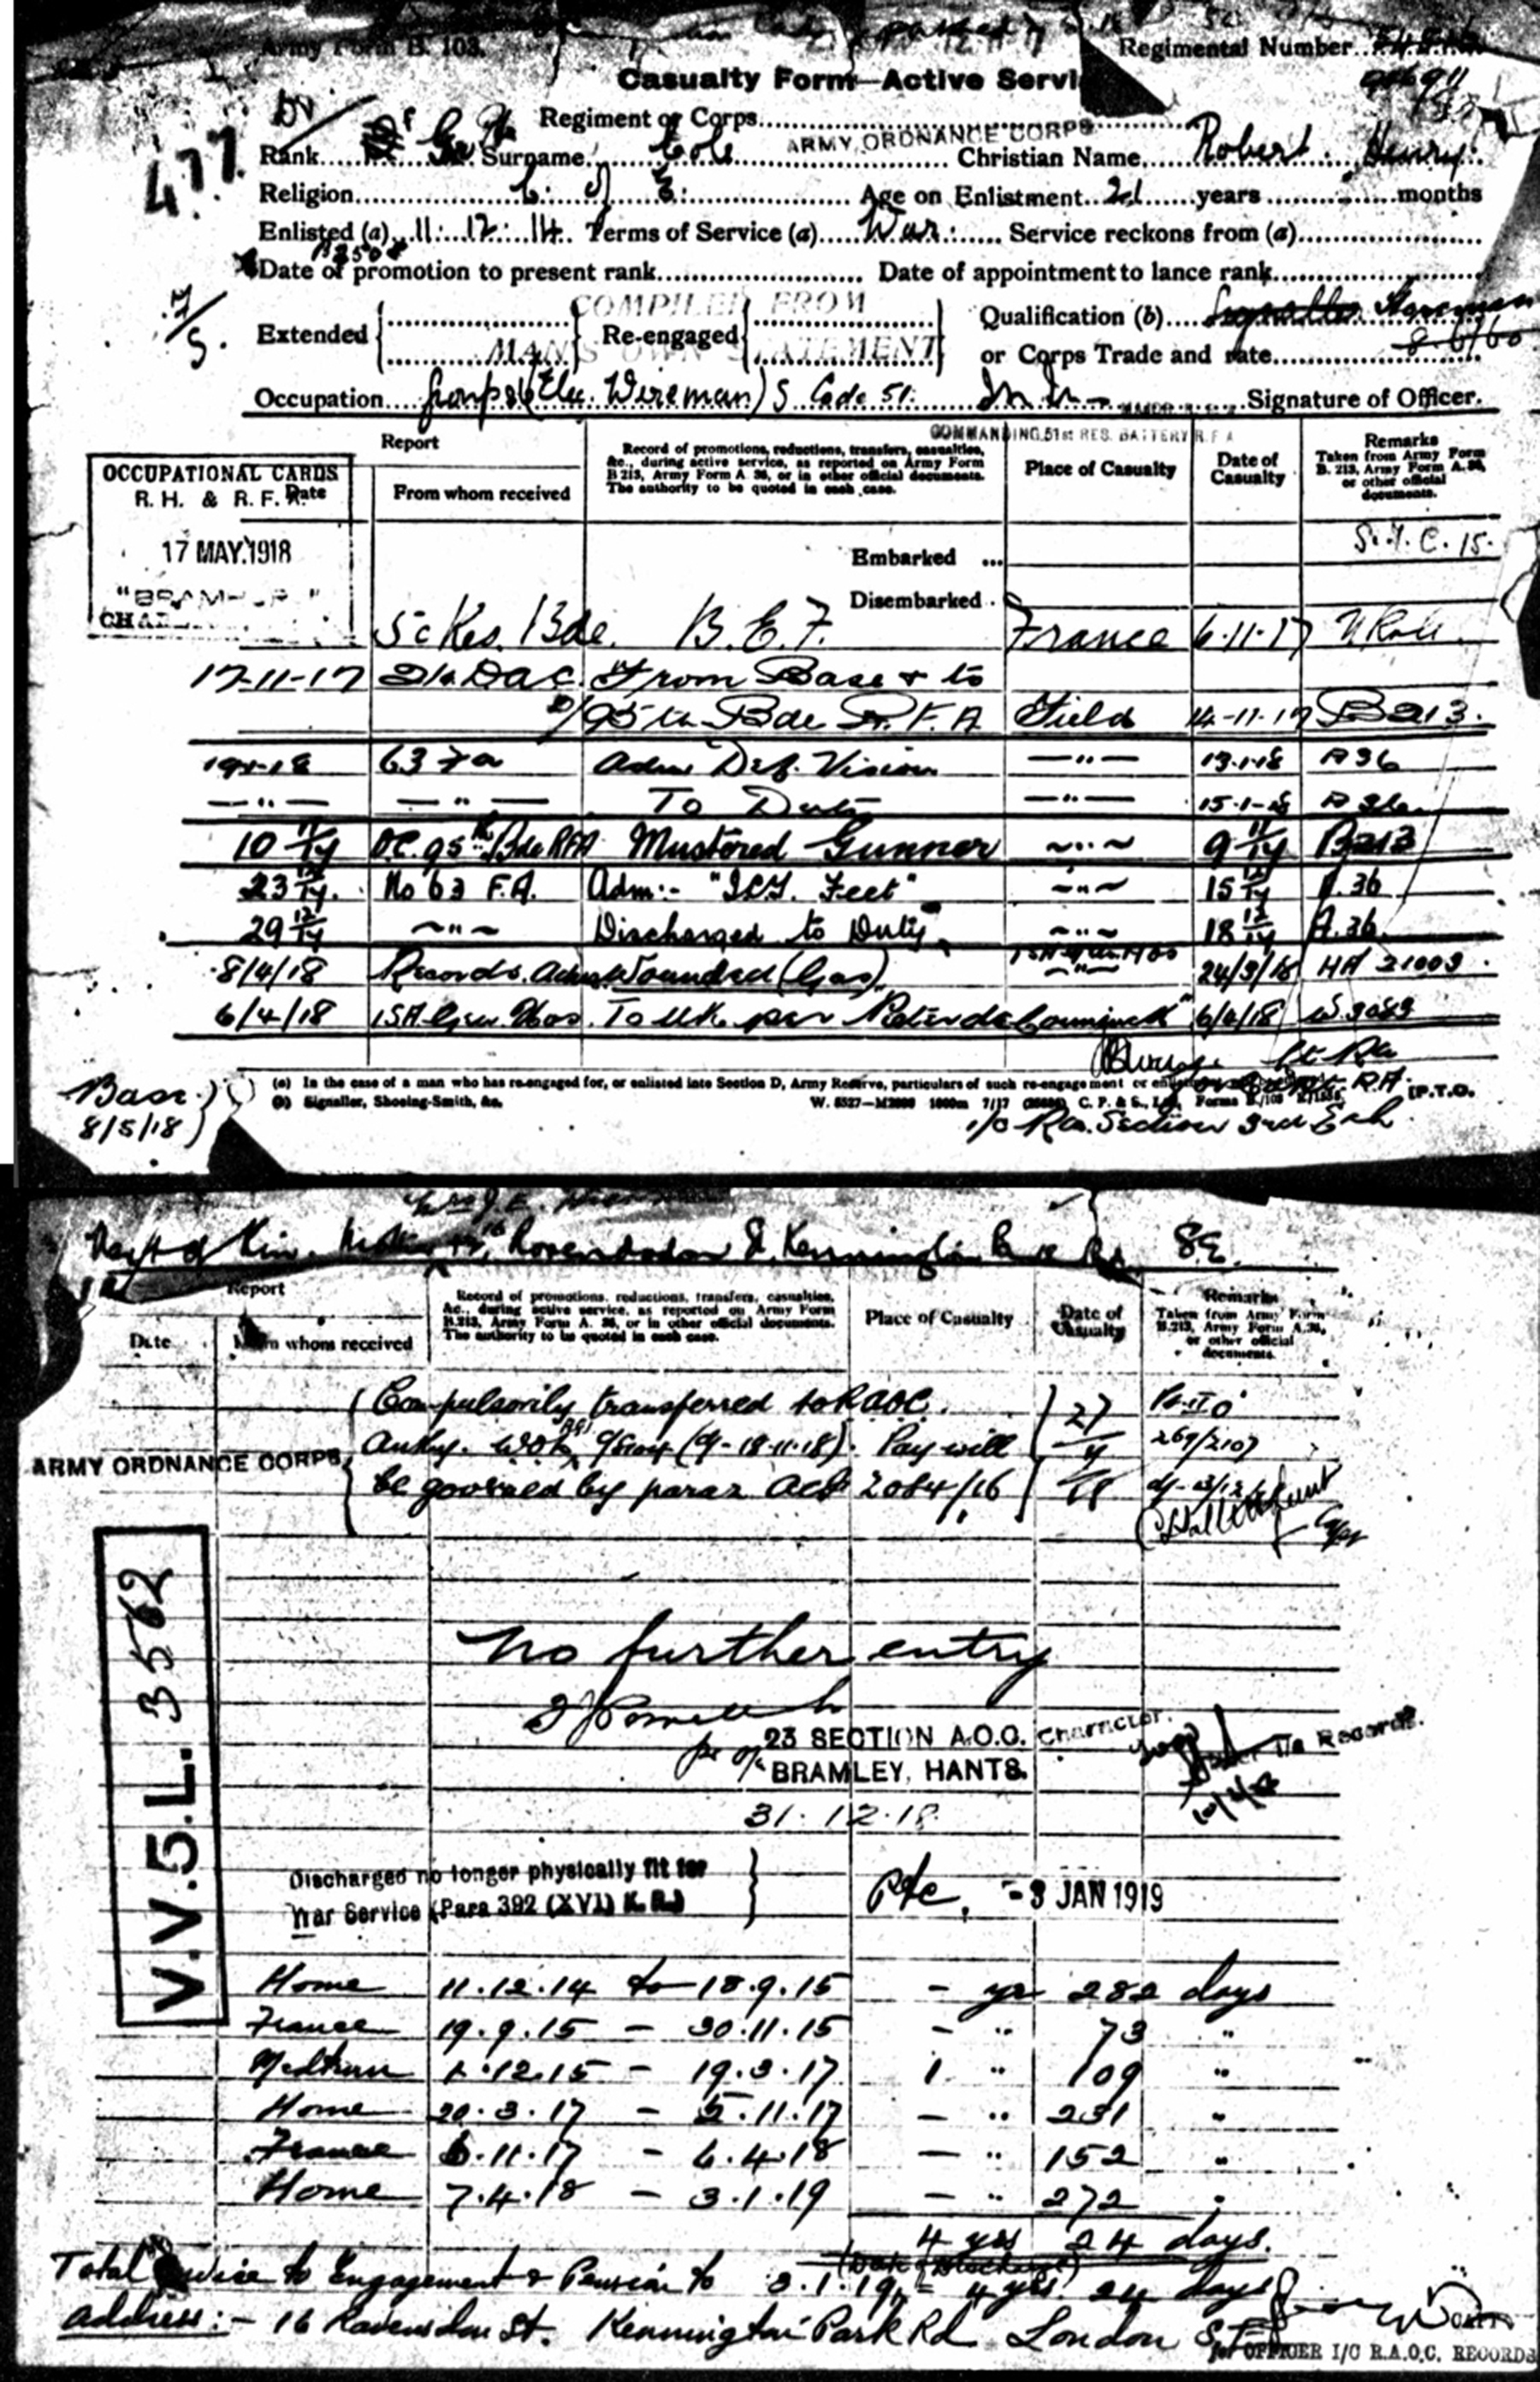 Army Form B. 103.
Regimental Number
Casualty Form—Active Servi
Regiment or Corps
ARMY ORDNANCE CORPS
477
Rank Surname Cole Christian Name Robert Henry
Religion C. of E. Age on Enlistment 21 years months
Enlisted (a) 11. 12. 14. Terms of Service (a) War Service reckons from (a)
Date of promotion to present rank Date of appointment to lance rank
COMPILED FROM
MAN'S OWN STATEMENT
Extended Re-engaged Qualification (b)
or Corps Trade and rate
Occupation (Elec. Wireman) S Code 51. Signature of Officer.
COMMANDING 51st RES. BATTERY R F A
OCCUPATIONAL CARDS
R. H. & R. F. A.
17 MAY. 1918
Report
Date
From whom received
Record of promotions, reductions, transfers, casualties,
&c., during active service, as reported on Army Form
B 213, Army Form A. 36, or in other official documents.
The authority to be quoted in each case.
Place of Casualty
Date of
Casualty
Remarks
Taken from Army Form
B. 213, Army Form A. 36,
or other official
documents.
Embarked ...
Disembarked .
5c Res. Bde. B.E.F. France 6.11.17 N Roll
17-11-17 21. D.A.C. From Base & to
D/95th Bde R.F.A Field 14-11-17 B213.
63 Fa Adm Def. Vision —"— 13.1.18 A36
—"— —"— To Duty —"— 15.1.18 A36
10 11/17 O.C. 95th Bde RFA Mustered Gunner ~"~ 9 11/17 B213
23 12/17. No 63 F.A. Adm:- "I.C.T. Feet" ~"~ 15 12/17 A.36
29 12/17 ~"~ Discharged to Duty ~"~ 18 12/17 A.36
8/4/18 Records. Wounded (Gas) —"— 24/3/18 HA 21003
6/4/18 1 SA Gen. Hos. To UK per 6/4/18 W.3083
(a) In the case of a man who has re-engaged for, or enlisted into Section D, Army Reserve, particulars of such re-engagement or
(b) Signaller, Shoeing-Smith, &c. W. 8527—M2000 1000m 7/17 C. P. & S., Ltd., Forms B./103 [P.T.O.
Base
8/5/18
i/c R.A. Section 3rd Ech.
Next of Kin. Mother 16, St, Kennington Rd S.E.
Report
Date
From whom received
Record of promotions, reductions, transfers, casualties,
&c., during active service, as reported on Army Form
B.213, Army Form A. 36, or in other official documents.
The authority to be quoted in each case.
Place of Casualty
Date of
Casualty
Remarks
Taken from Army Form
B.213, Army Form A.36,
or other official
documents.
Compulsorily transferred to RAOC. 27
ARMY ORDNANCE CORPS
Authy. (d/- 18.11.18). Pay will 269/2107
be governed by para 2 ACI 2084/16
V.V.5.L. 3562
No further entry
23 SECTION A.O.C. Character.
BRAMLEY, HANTS.
Records.
31.12.18
Discharged no longer physically fit for
War Service (Para 392 (XVI) K.R.) Pte. -3 JAN 1919
Home 11.12.14 to 18.9.15 - yr 282 days
France 19.9.15 - 30.11.15 - " 73 "
1.12.15 - 19.3.17 1 " 109 "
Home 20.3.17 - 5.11.17 — " 231 "
France 6.11.17 - 6.4.18 — " 152 "
Home 7.4.18 - 3.1.19 — " 272 "
4 yrs 24 days.
Total Service to Engagement & Pension to 3.1.19 = 4 yrs. 24 days
Address:- 16 Ravensdon St. Kennington Park Rd London S.E.
for OFFICER I/C R.A.O.C. RECORDS